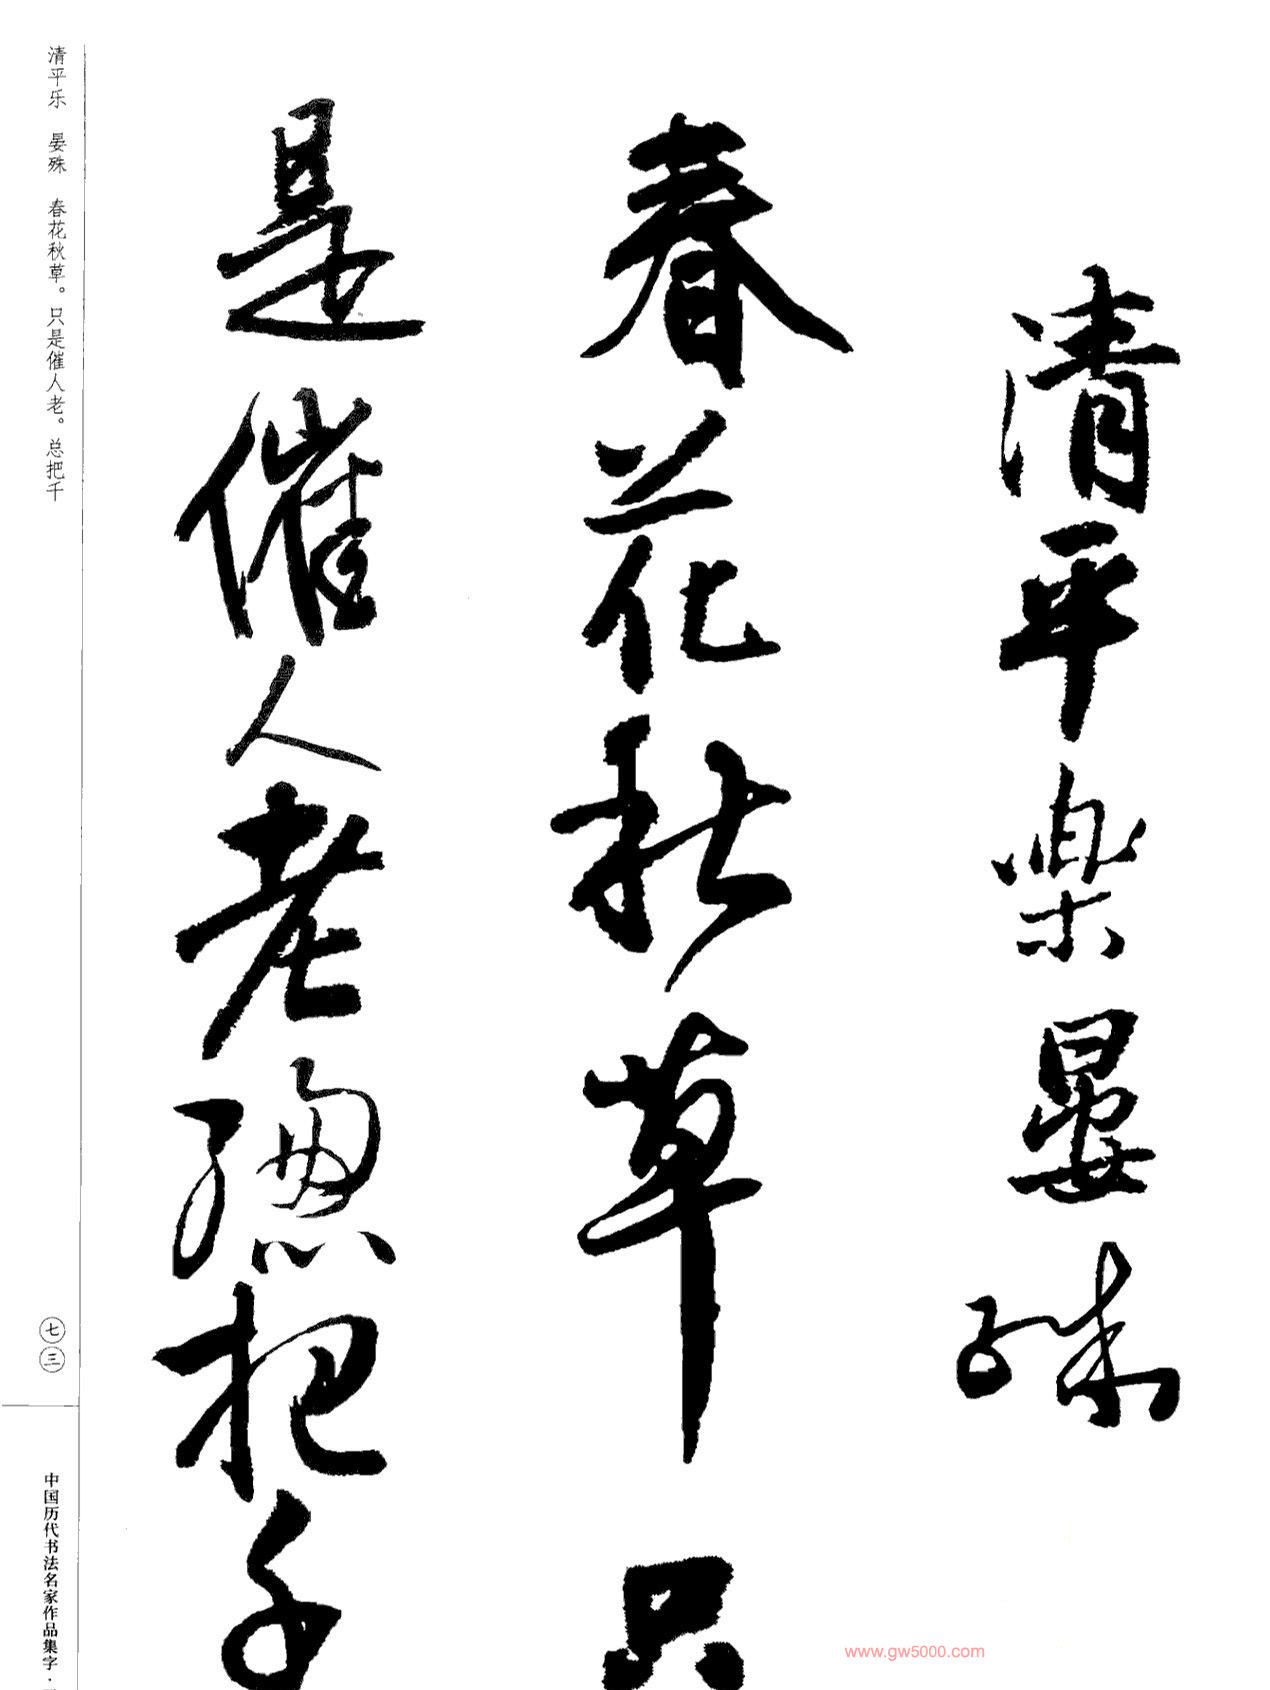 清平樂晏殊
春花秋草只
是催人老總把千
清平乐 晏殊 春花秋草。只是催人老。总把千
七三
中国历代书法名家作品集字·
www.gw5000.com